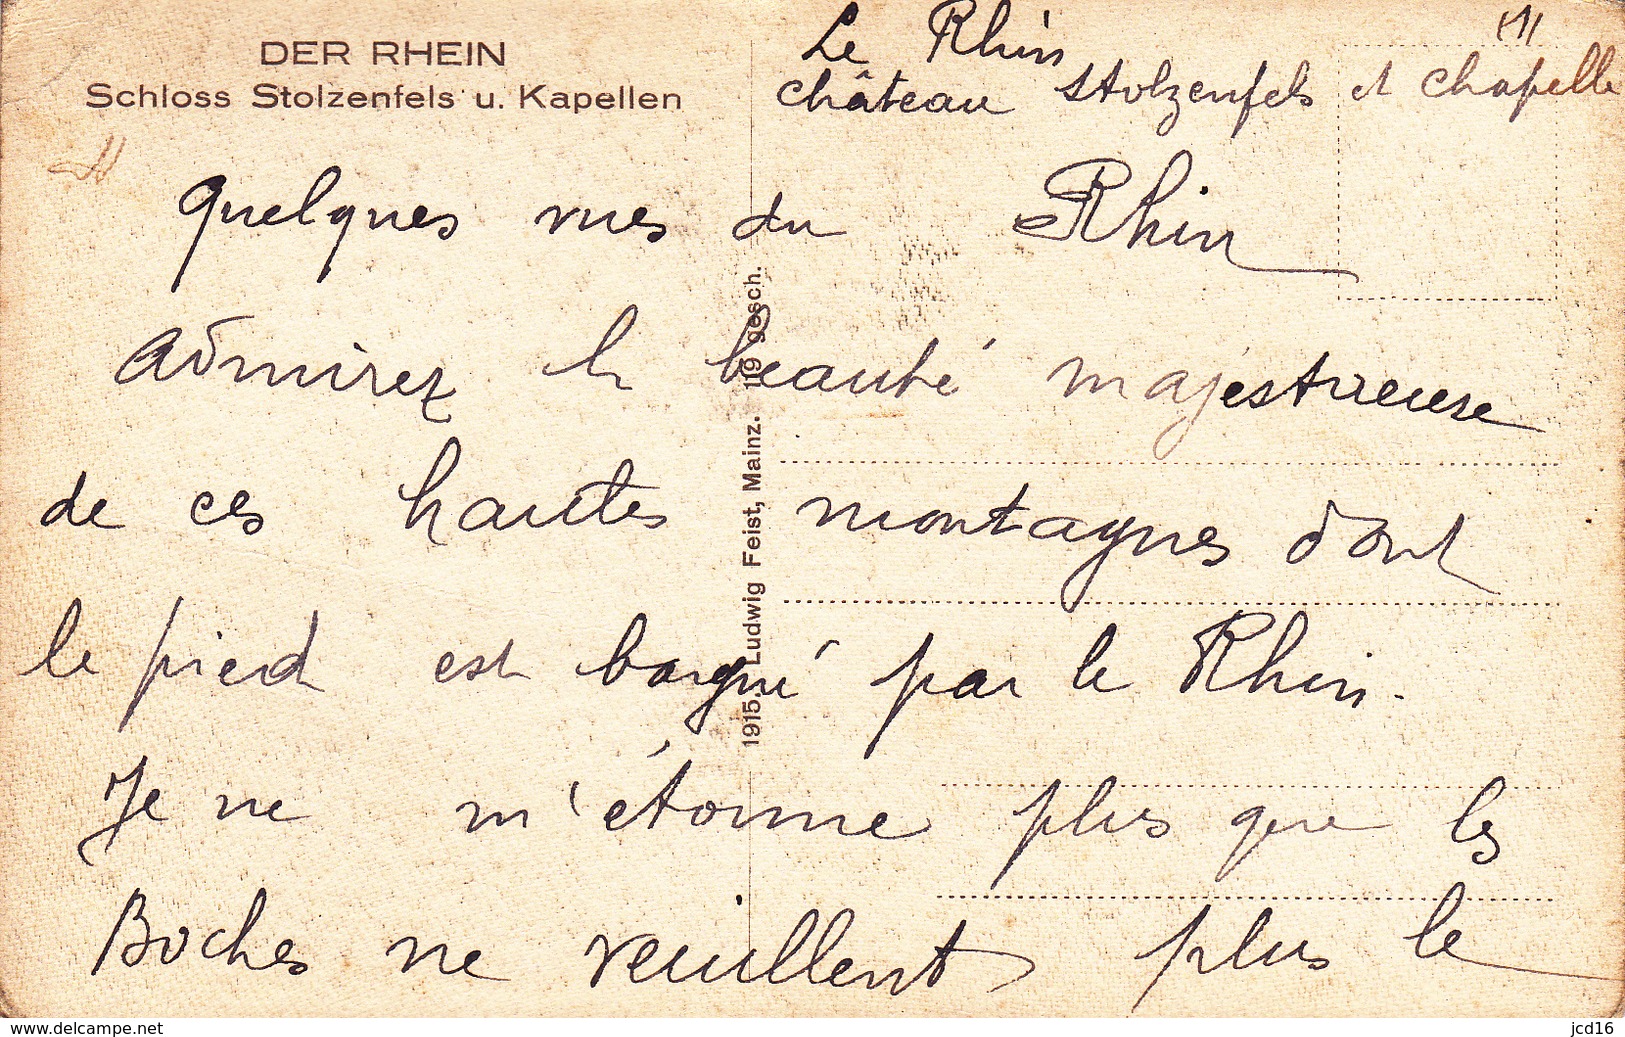 DER RHEIN
Schloss Stolzenfels u. Kapellen
Le Rhin
château Stolzenfels et chapelle
Quelques vues du Rhin
Admirez la beauté majestueuse
de ces hautes montagnes dont
le pied est baigné par le Rhin.
Je ne m'étonne plus que les
Boches ne veuillent plus le
1915. Ludwig Feist, Mainz. 119 gesch.
www.delcampe.net
jcd16